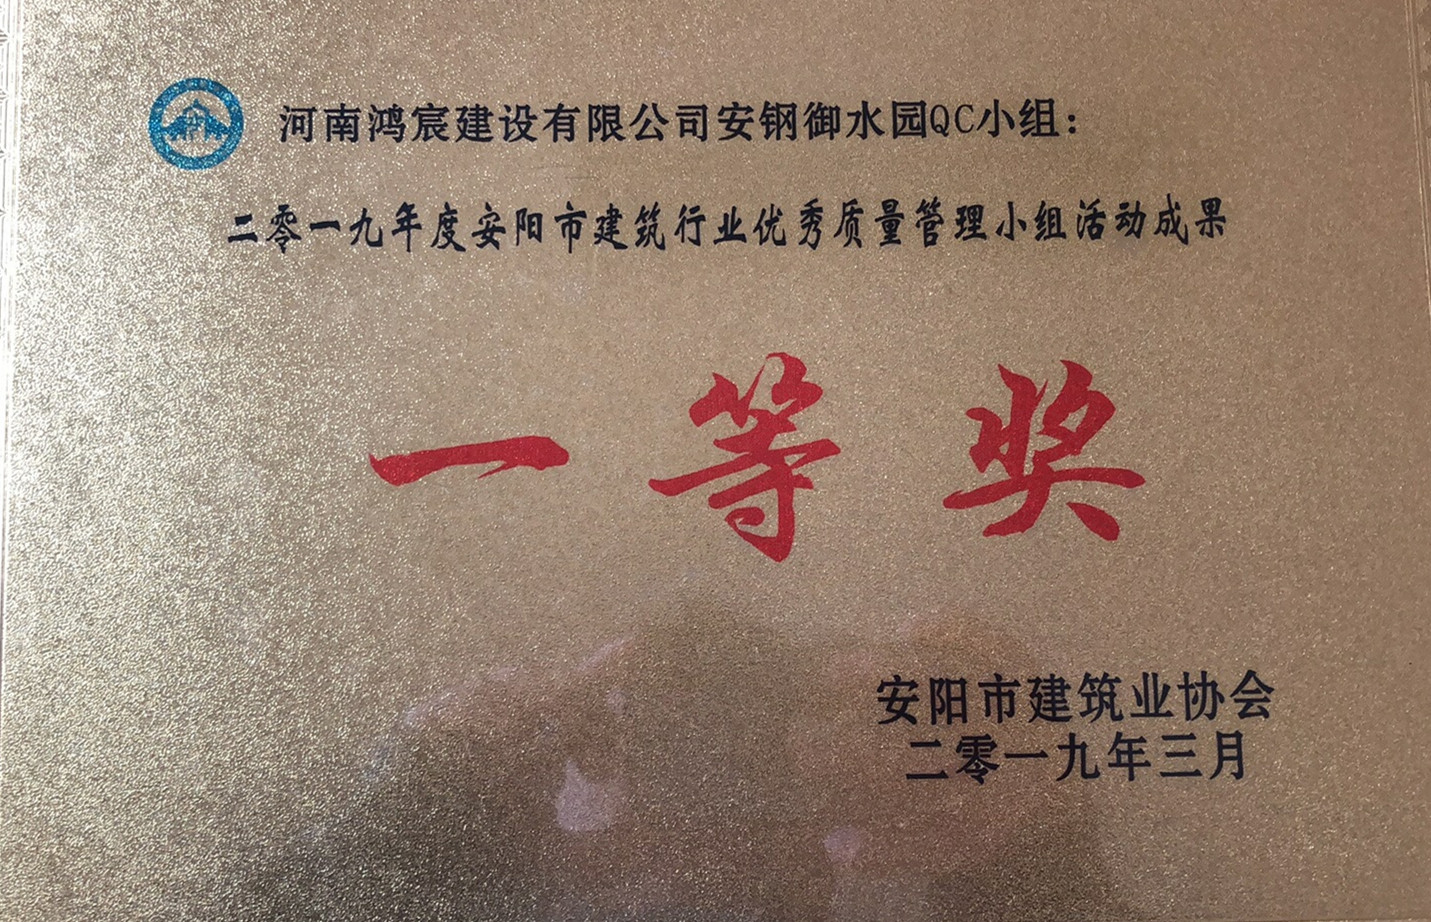 河南鸿宸建设有限公司安钢御水园QC小组：
二零一九年度安阳市建筑行业优秀质量管理小组活动成果
一等奖
安阳市建筑业协会
二零一九年三月